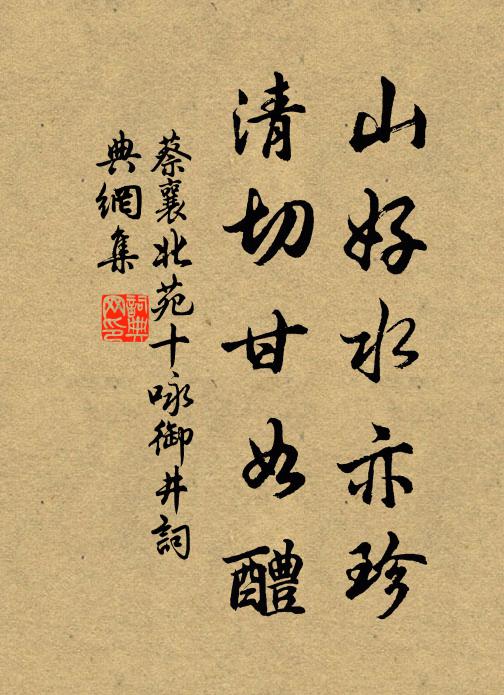 山好水亦珍
清切甘如醴
蔡襄北苑十咏御井詞
典網集
詞典
网印